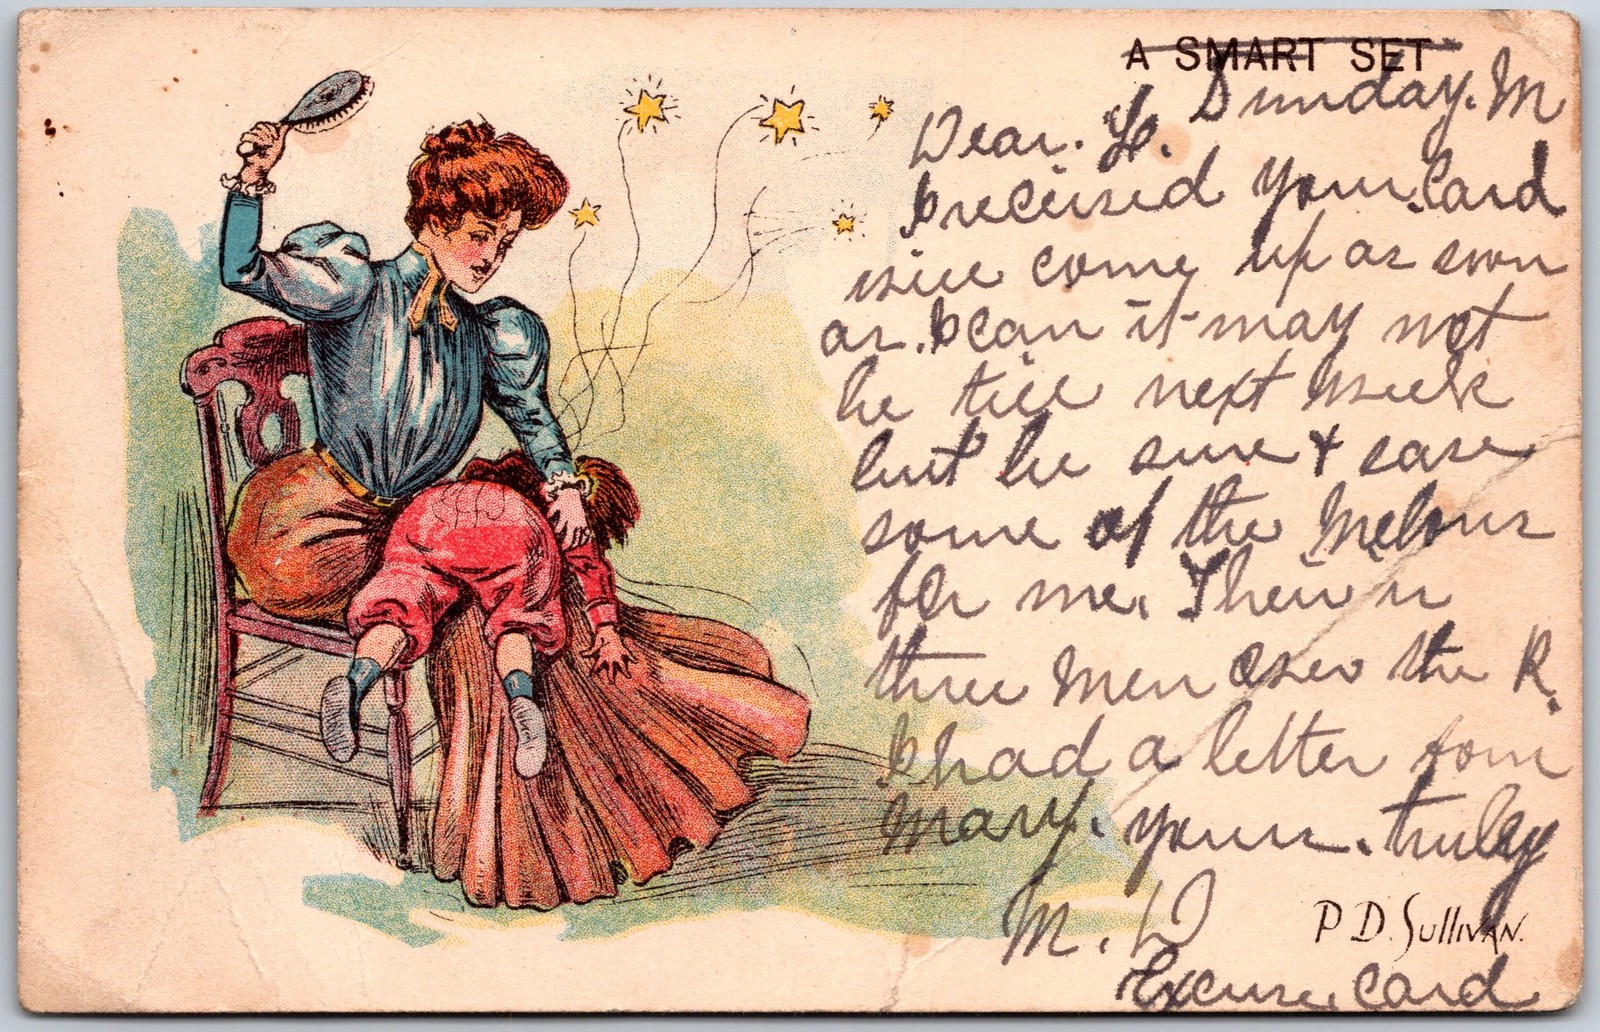 A SMART SET
Sunday. M
Dear. L.
I received your. Card
will come up as soon
as. I can it may not
be till next week
but be sure & save
some of the Melons
for me. Their is
three men over the R.
I had a letter from
Mary. yours. truly
M. W
Excuse card
P D. SULLIVAN.